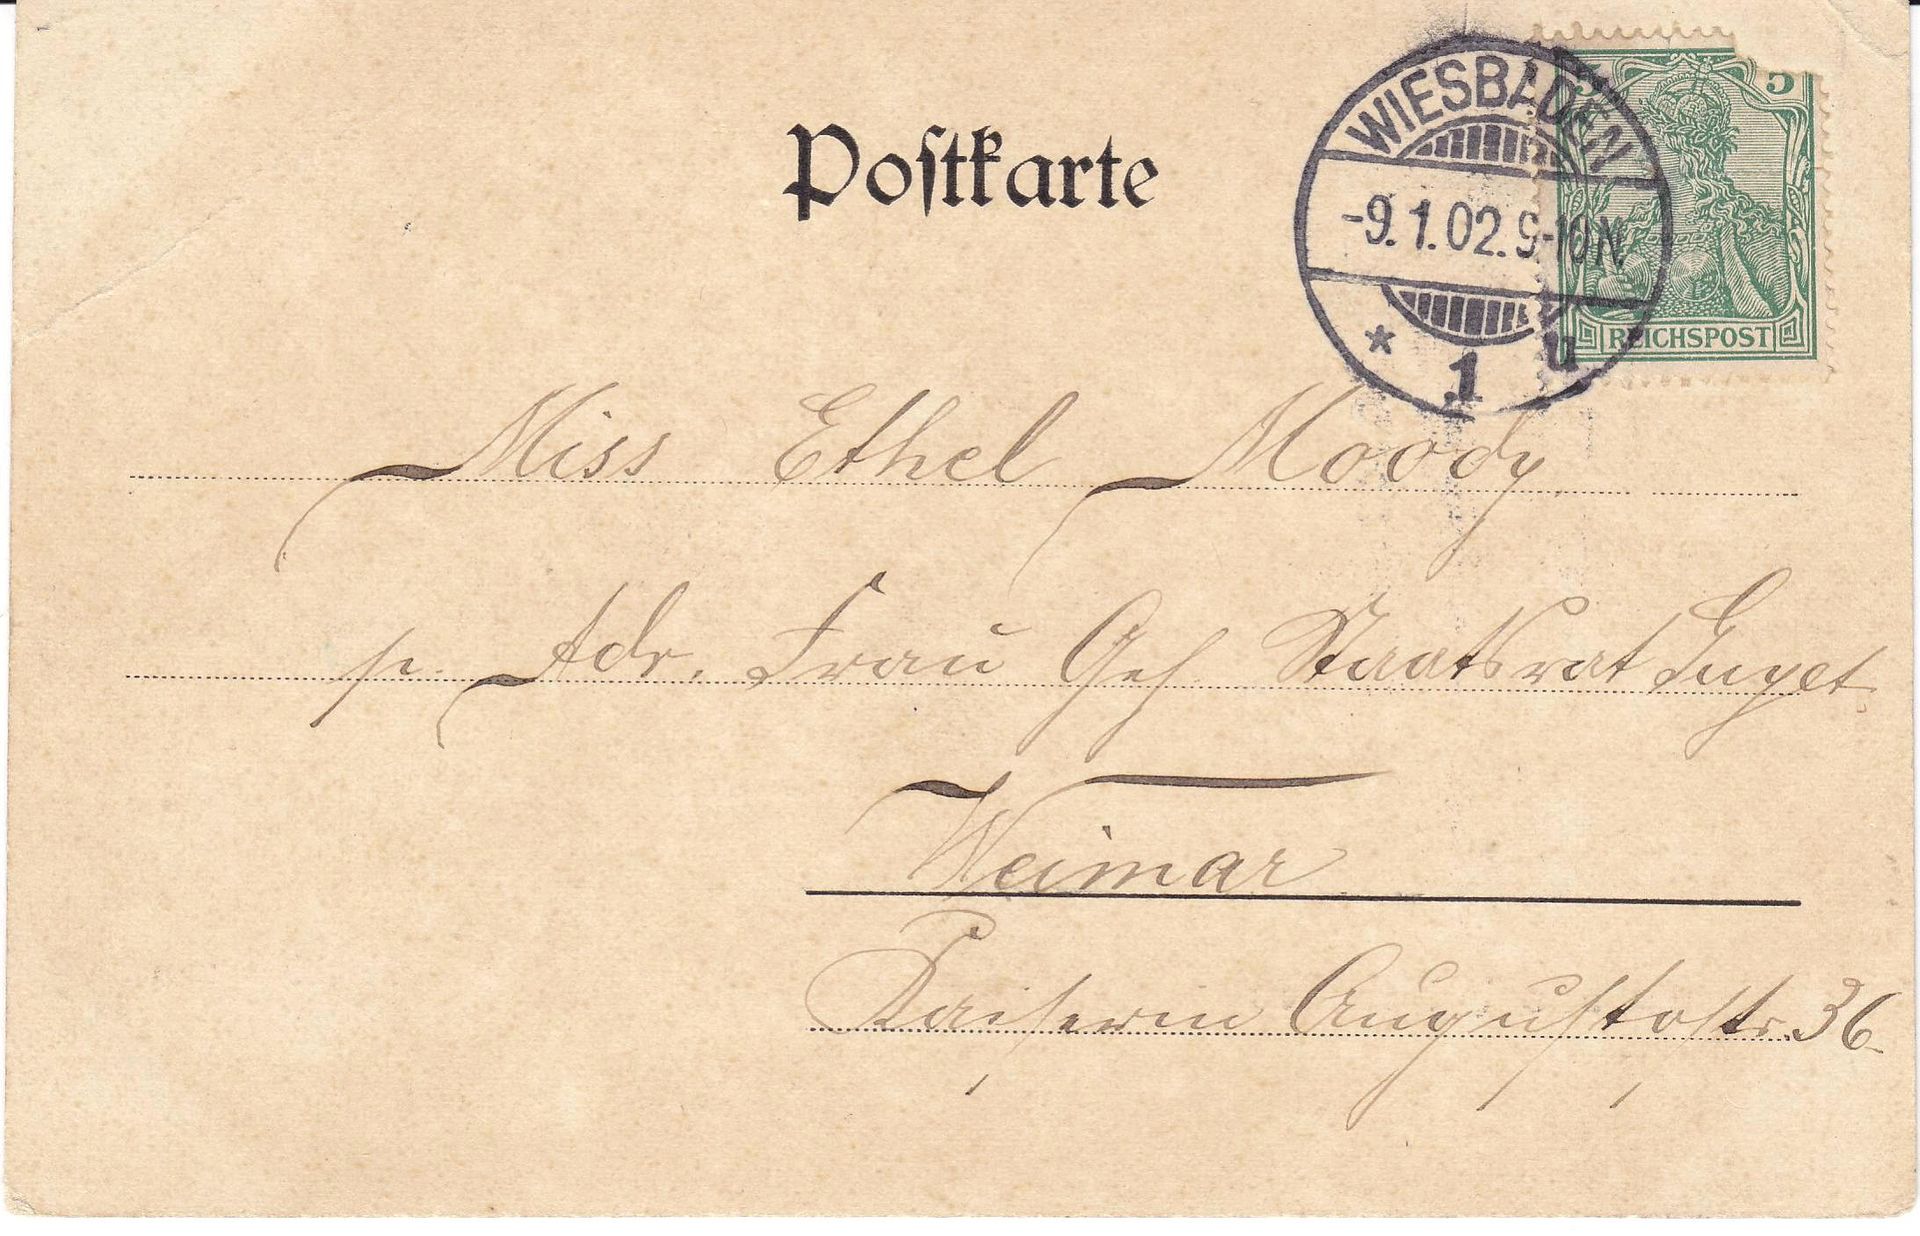 Postkarte
WIESBADEN
-9.1.02.9-10N.
* 1 u
5 5
REICHSPOST
Miss Ethel Moody
p. Adr. Frau Geh Staatsrat
Weimar
Kaiserin Augustastr. 36